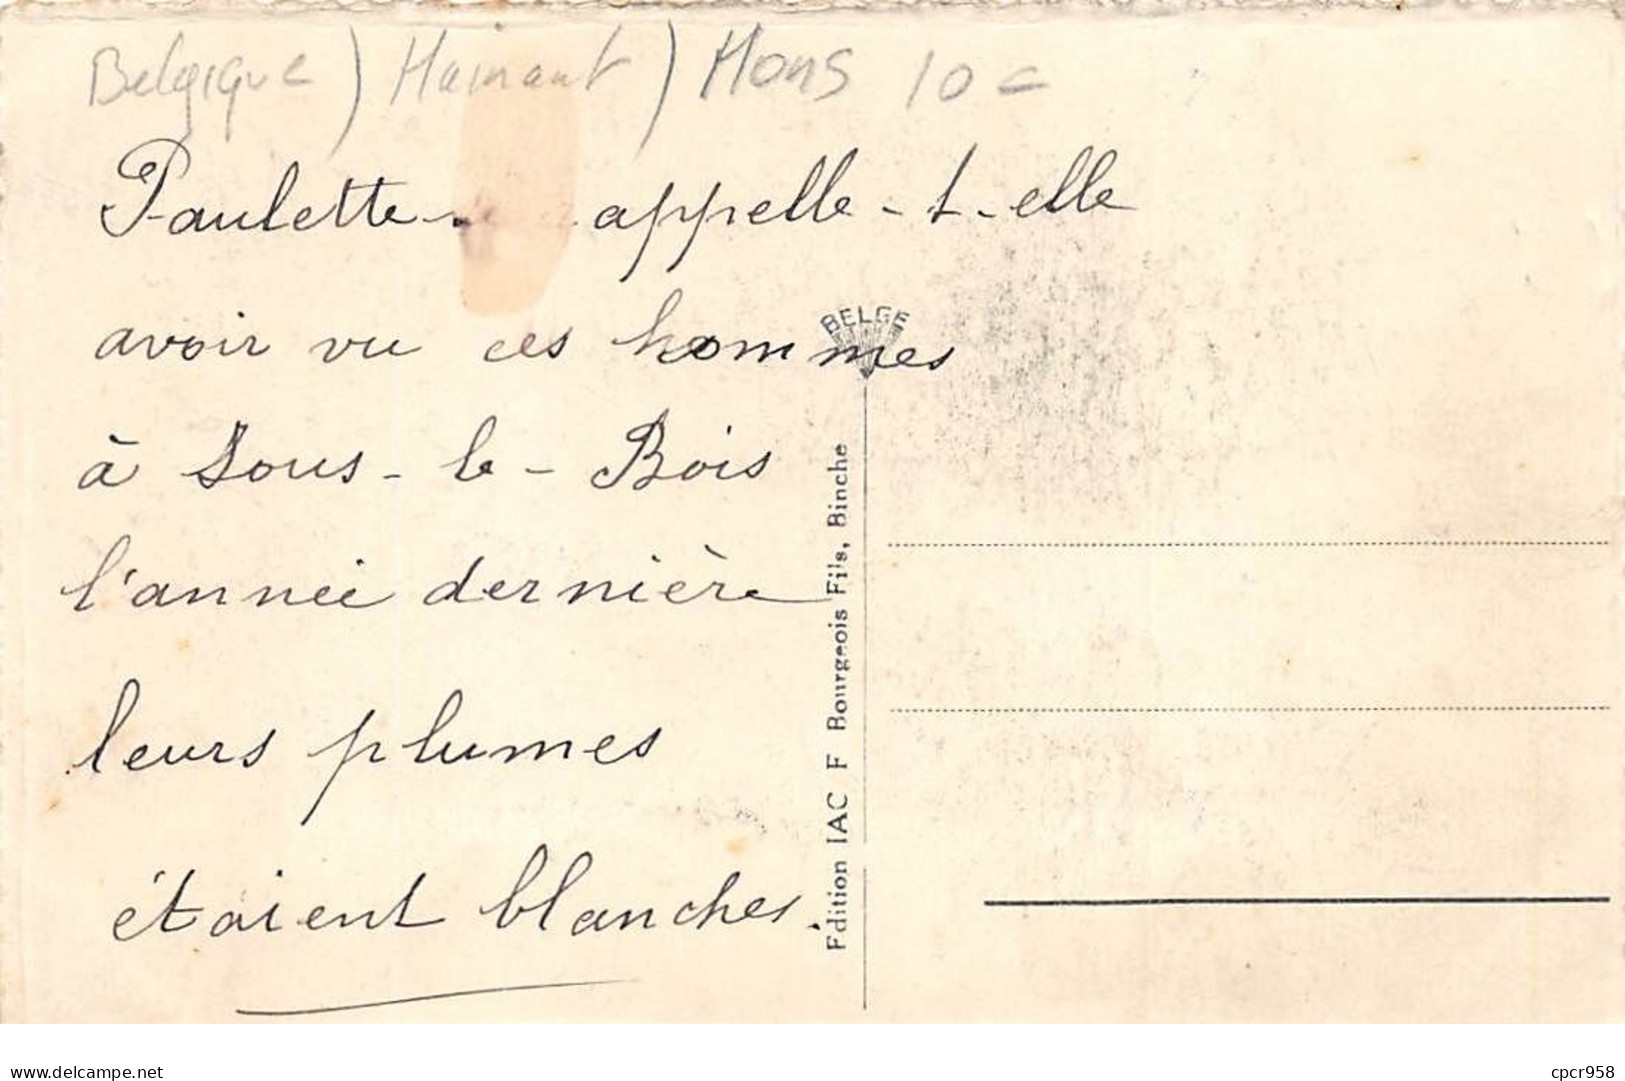 Belgique ) Hainaut ) Mons 10 =
Paulette appelle-t-elle
avoir vu ces hommes
à Sous-le-Bois
l'année dernière
leurs plumes
étaient blanches.
BELGE
Edition IAC F Bourgeois Fils, Binche
delcampe.net
cpcr958